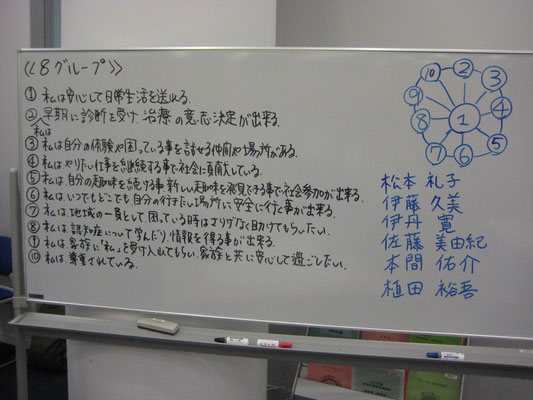 《8グループ》
① 私は安心して日常生活を送れる.
② 早期に診断を受け、治療の意志決定が出来る.
私は
③ 私は自分の体験や困っている事を話せる仲間や場所がある.
④ 私は、やりたい仕事を継続する事で社会に貢献している.
⑤ 私は、自分の趣味を続ける事、新しい趣味を発見できる事で社会参加が出来る.
⑥ 私は、いつでもどこでも自分の行きたい場所に安全に行く事が出来る.
⑦ 私は地域の一員として困っている時はさりげなく助けてもらいたい.
⑧ 私は認知症について学んだり、情報を得る事が出来る.
⑨ 私は、家族に「私」と受け入れてもらい、家族と共に安心して過ごしたい.
⑩ 私は、尊重されている.
⑩ ② ③
⑨ ④
① 
⑧ ⑤
⑦ ⑥
松本 礼子
伊藤 久美
伊丹 寛
佐藤 美由紀
本間 佑介
植田 裕吾